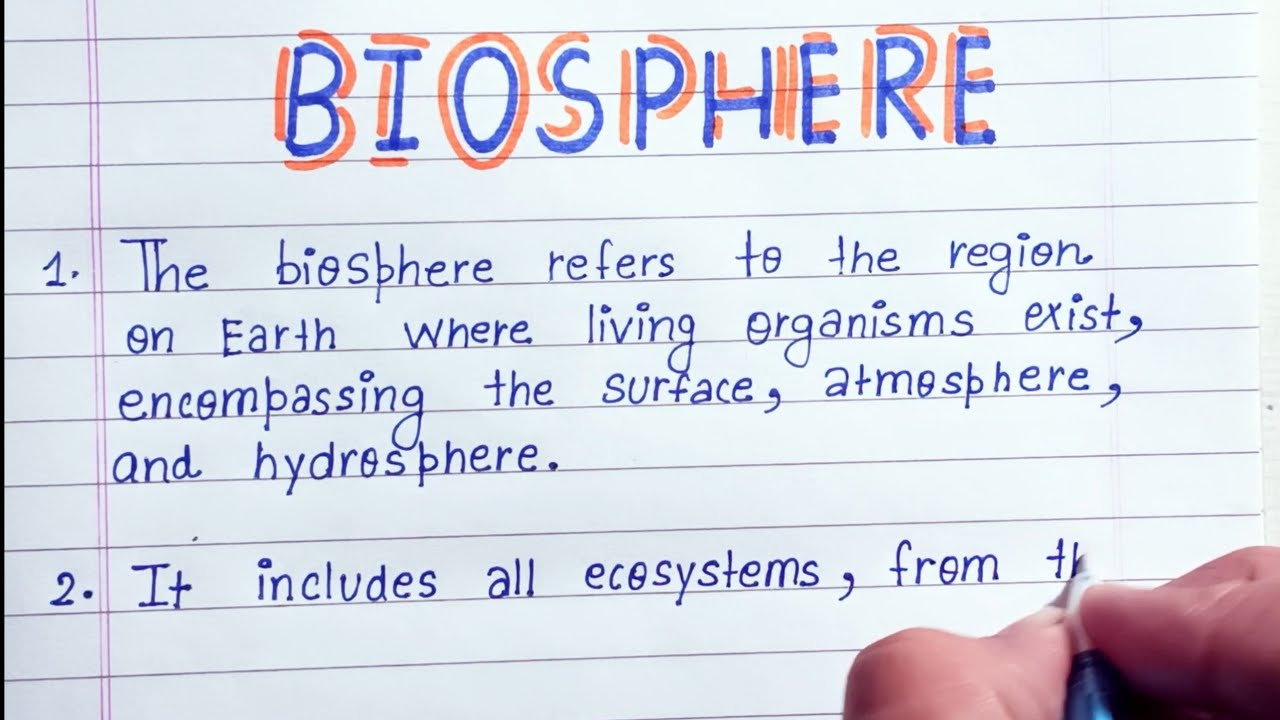 BIOSPHERE
1. The biosphere refers to the region
on Earth where living organisms exist,
encompassing the surface, atmosphere,
and hydrosphere.
2. It includes all ecosystems, from th